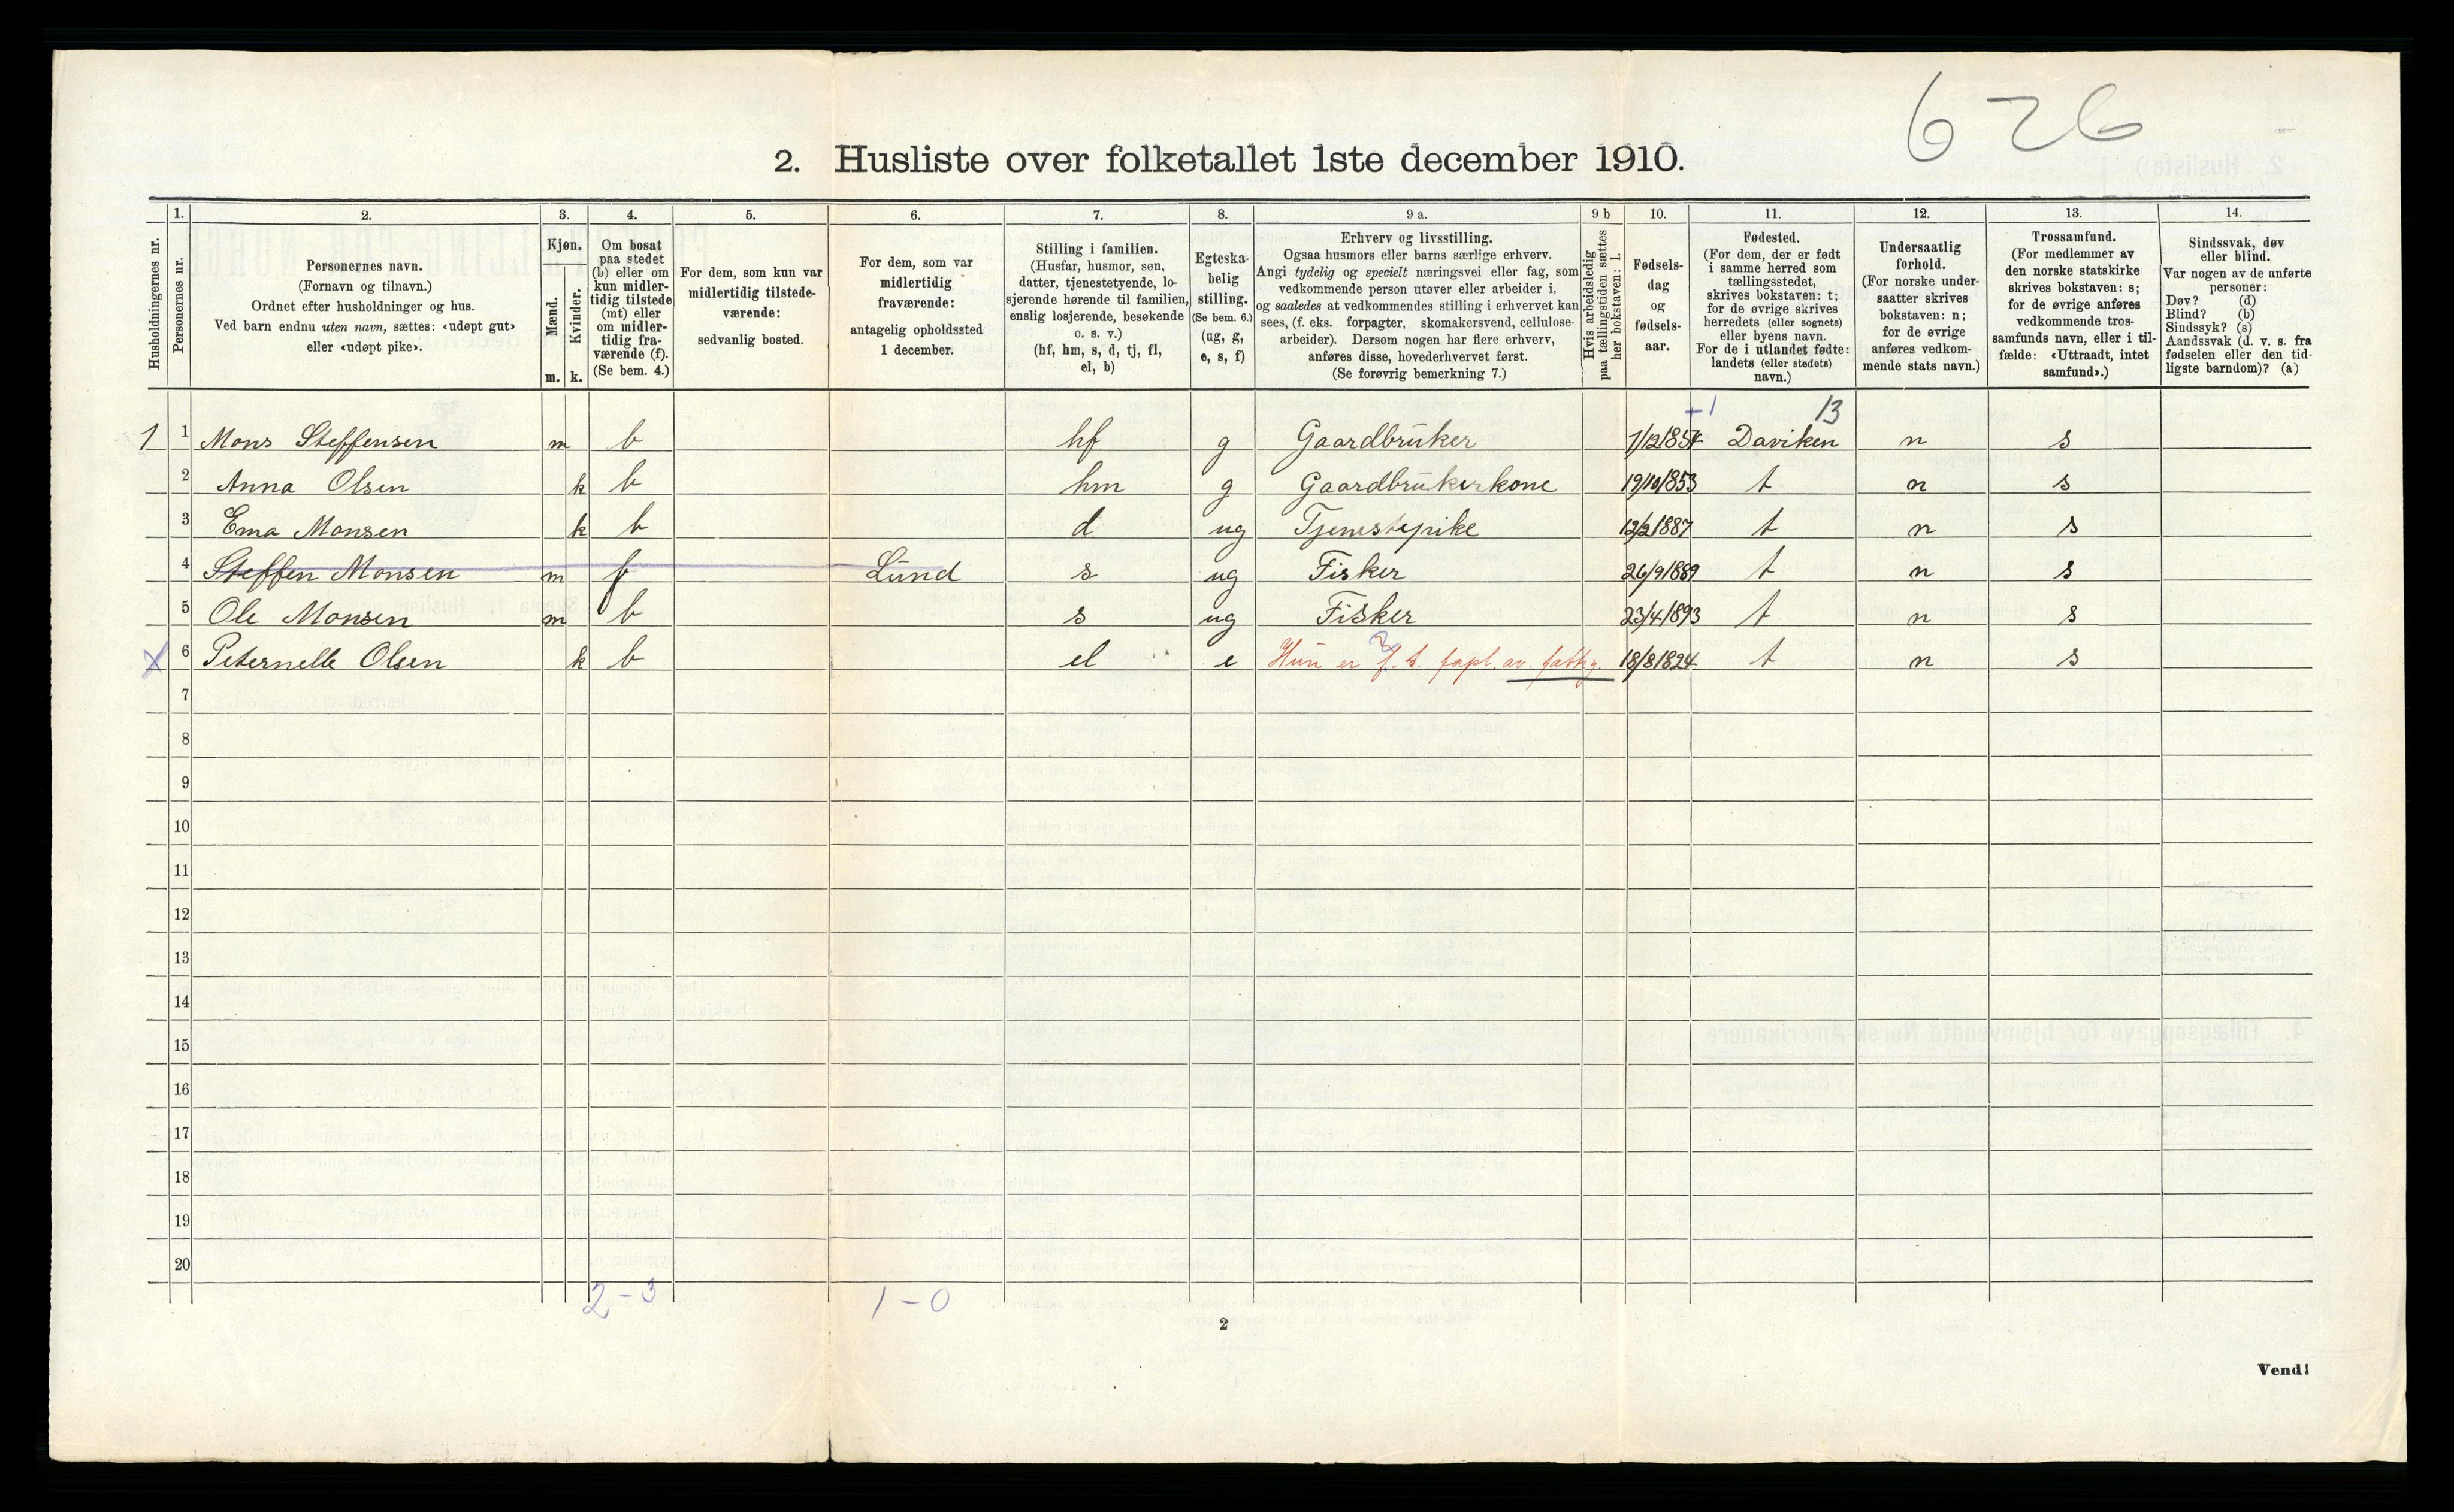 626
2. Husliste over folketallet 1ste december 1910.
Husholdningernes nr.
1.
Personernes nr.
2.
Personernes navn.
(Fornavn og tilnavn.)
Ordnet efter husholdninger og hus.
Ved barn endnu uten navn, sættes: «udøpt gut»
eller «udøpt pike».
3.
Kjøn.
Mænd.
Kvinder.
m. k.
4.
Om bosat
paa stedet
(b) eller om
kun midler-
tidig tilstede
(mt) eller
om midler-
tidig fra-
værende (f).
(Se bem. 4.)
5.
For dem, som kun var
midlertidig tilstede-
værende:
sedvanlig bosted.
6.
For dem, som var
midlertidig
fraværende:
antagelig opholdssted
1 december.
7.
Stilling i familien.
(Husfar, husmor, søn,
datter, tjenestetyende, lo-
sjerende hørende til familien,
enslig losjerende, besøkende
o. s. v.)
(hf, hm, s, d, tj, fl,
el, b)
8.
Egteska-
belig
stilling.
(Se bem. 6.)
(ug, g,
e, s, f)
9 a.
Erhverv og livsstilling.
Ogsaa husmors eller barns særlige erhverv.
Angi tydelig og specielt næringsvei eller fag, som
vedkommende person utøver eller arbeider i,
og saaledes at vedkommendes stilling i erhvervet kan
sees, (f. eks. forpagter, skomakersvend, cellulose-
arbeider). Dersom nogen har flere erhverv,
anføres disse, hovederhvervet først.
(Se forøvrig bemerkning 7.)
9 b
Hvis arbeidsledig
paa tællingstiden sættes
her bokstaven: l.
10.
Fødsels-
dag
og
fødsels-
aar.
11.
Fødested.
(For dem, der er født
i samme herred som
tællingsstedet,
skrives bokstaven: t;
for de øvrige skrives
herredets (eller sognets)
eller byens navn.
For de i utlandet fødte:
landets (eller stedets)
navn.)
12.
Undersaatlig
forhold.
(For norske under-
saatter skrives
bokstaven: n;
for de øvrige
anføres vedkom-
mende stats navn.)
13.
Trossamfund.
(For medlemmer av
den norske statskirke
skrives bokstaven: s;
for de øvrige anføres
vedkommende tros-
samfunds navn, eller i til-
fælde: «Uttraadt, intet
samfund».)
14.
Sindssvak, døv
eller blind.
Var nogen av de anførte
personer:
Døv? (d)
Blind? (b)
Sindssyk? (s)
Aandssvak (d. v. s. fra
fødselen eller den tid-
ligste barndom)? (a)
-1 13
1 1 Mons Steffensen m b hf g Gaardbruker 1/12 1854 Daviken n s
2 Anna Olsen k b hm g Gaardbrukerkone 19/10 1853 t n s
3 Ema Monsen k b d ug Tjenestepike 12/2 1887 t n s
4 Steffen Monsen m f Lund s ug Fisker 26/9 1889 t n s
5 Ole Monsen m b s ug Fisker 23/4 1893 t n s
X 6 Peternelle Olsen k b el e Hun er f. t. fopl. av fattig. 18/8 1824 t n s
7
8
9
10
11
12
13
14
15
16
17
18
19
20
2-3 1-0
2
Vend!